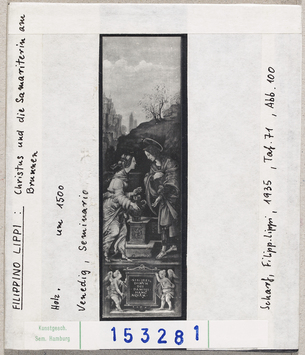 FILIPPINO LIPPI : Christus und die Samariterin am
Brunnen
Holz. um 1500
Venedig, Seminario
Scharf, Filipp. Lippi, 1935, Taf. 71, Abb. 100
Kunstgesch.
Sem. Hamburg
153281